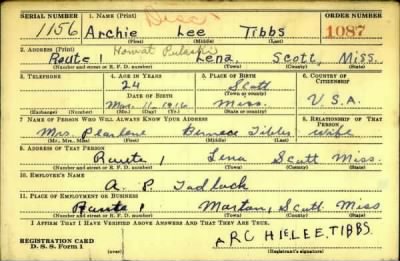 SERIAL NUMBER 1. NAME (Print) ORDER NUMBER
1156 Archie Lee Tibbs 1087
(First) (Middle) (Last)
2. ADDRESS (Print)
Route 1 Lena, Scott, Miss.
(Number and street or R. F. D. number) (Town) (County) (State)
3. TELEPHONE 4. AGE IN YEARS 5. PLACE OF BIRTH 6. COUNTRY OF CITIZENSHIP
24 Scott
DATE OF BIRTH (Town or county)
Mar. 11 1916 Miss. U.S.A.
(Exchange) (Number) (Mo.) (Day) (Yr.) (State or country)
7. NAME OF PERSON WHO WILL ALWAYS KNOW YOUR ADDRESS 8. RELATIONSHIP OF THAT PERSON
Mrs. Pearlene Berneice Tibbs wife
(Mr., Mrs., Miss) (First) (Middle) (Last)
9. ADDRESS OF THAT PERSON
Route 1 Lena Scott Miss.
(Number and street or R. F. D. number) (Town) (County) (State)
10. EMPLOYER'S NAME
A. P. Tadlock
11. PLACE OF EMPLOYMENT OR BUSINESS
Route 1 Morton, Scott Miss
(Number and street or R. F. D. number) (Town) (County) (State)
I AFFIRM THAT I HAVE VERIFIED ABOVE ANSWERS AND THAT THEY ARE TRUE.
REGISTRATION CARD ARCHIE LEE.TIBBS.
D. S. S. Form 1 (Registrant's signature)